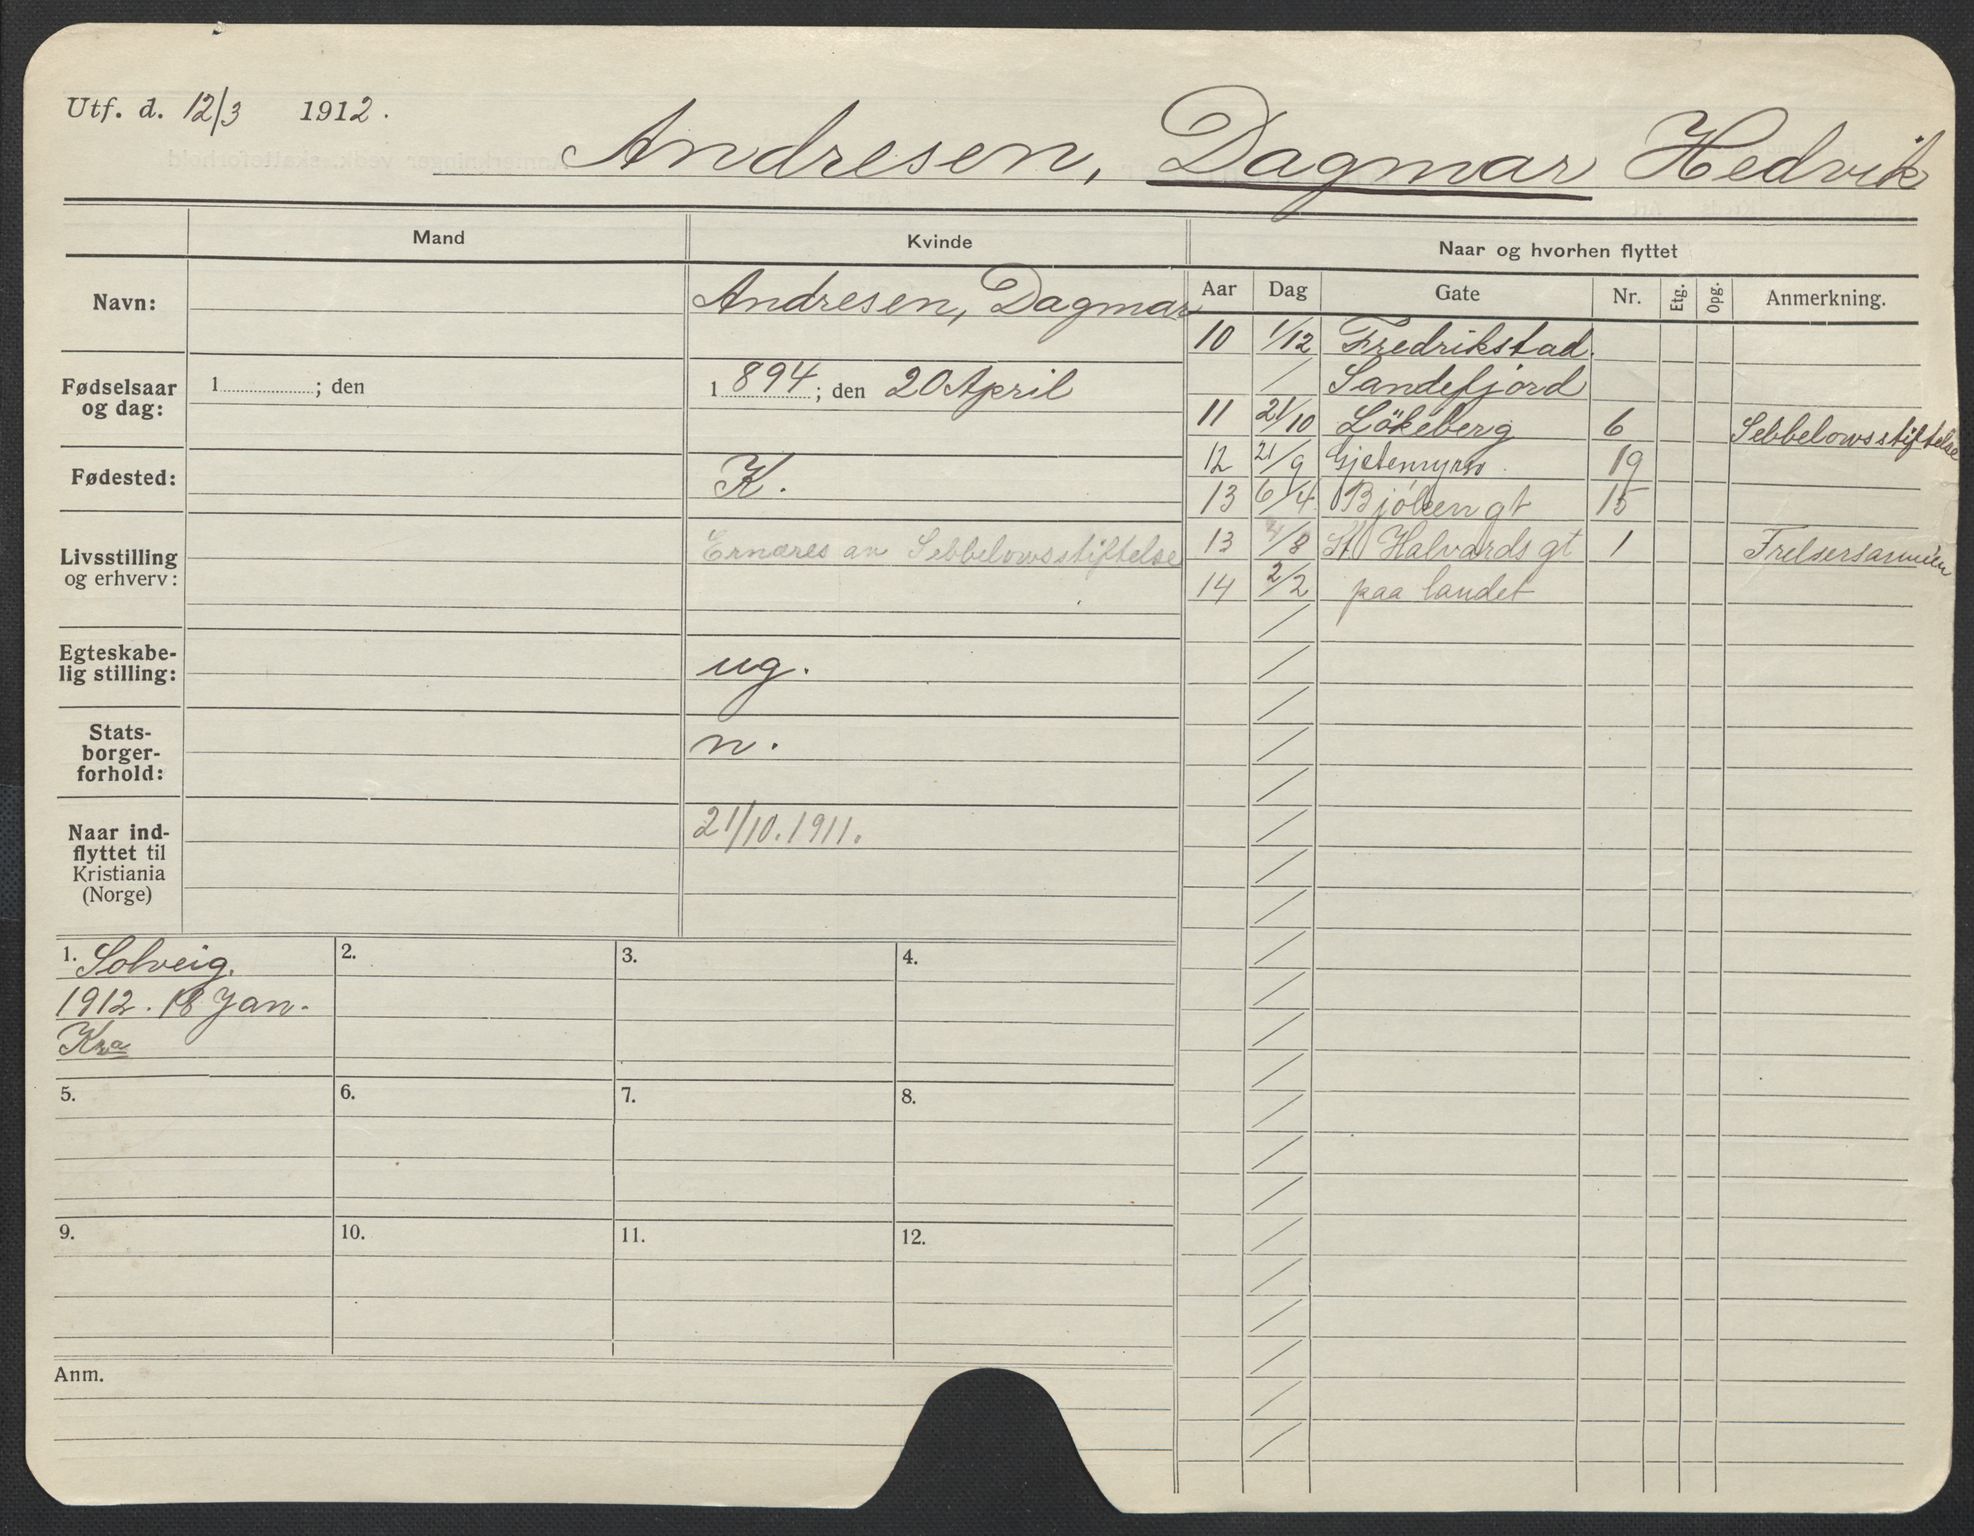 Utf. d. 12/3 1912.
Andresen, Dagmar Hedvik
Mand
Kvinde
Navn:
Andresen, Dagmar
Fødselsaar og dag:
1 ; den
1894; den 20 April
Fødested:
K.
Livsstilling og erhverv:
Ernæres av Sebbelowsstiftelse
Egteskabe-
lig stilling:
ug.
Stats-
borger-
forhold:
n.
Naar ind-
flyttet til
Kristiania
(Norge)
21/10. 1911.
1. Solveig.
1912. 18 Jan.
Kra
2.
3.
4.
5.
6.
7.
8.
9.
10.
11.
12.
Anm.
Naar og hvorhen flyttet
Aar Dag Gate Nr. Etg. Opg. Anmerkning.
10 1/12 Fredrikstad.
/ Sandefjord
11 21/10 Lökeberg 6 Sebbelowsstiftelse
12 21/9 Gjetemyrsv. 19
13 6/4 Bjölsengt 15
13 /8 St Halvards gt 1 Frelsersarmeen
14 2/2 paa landet